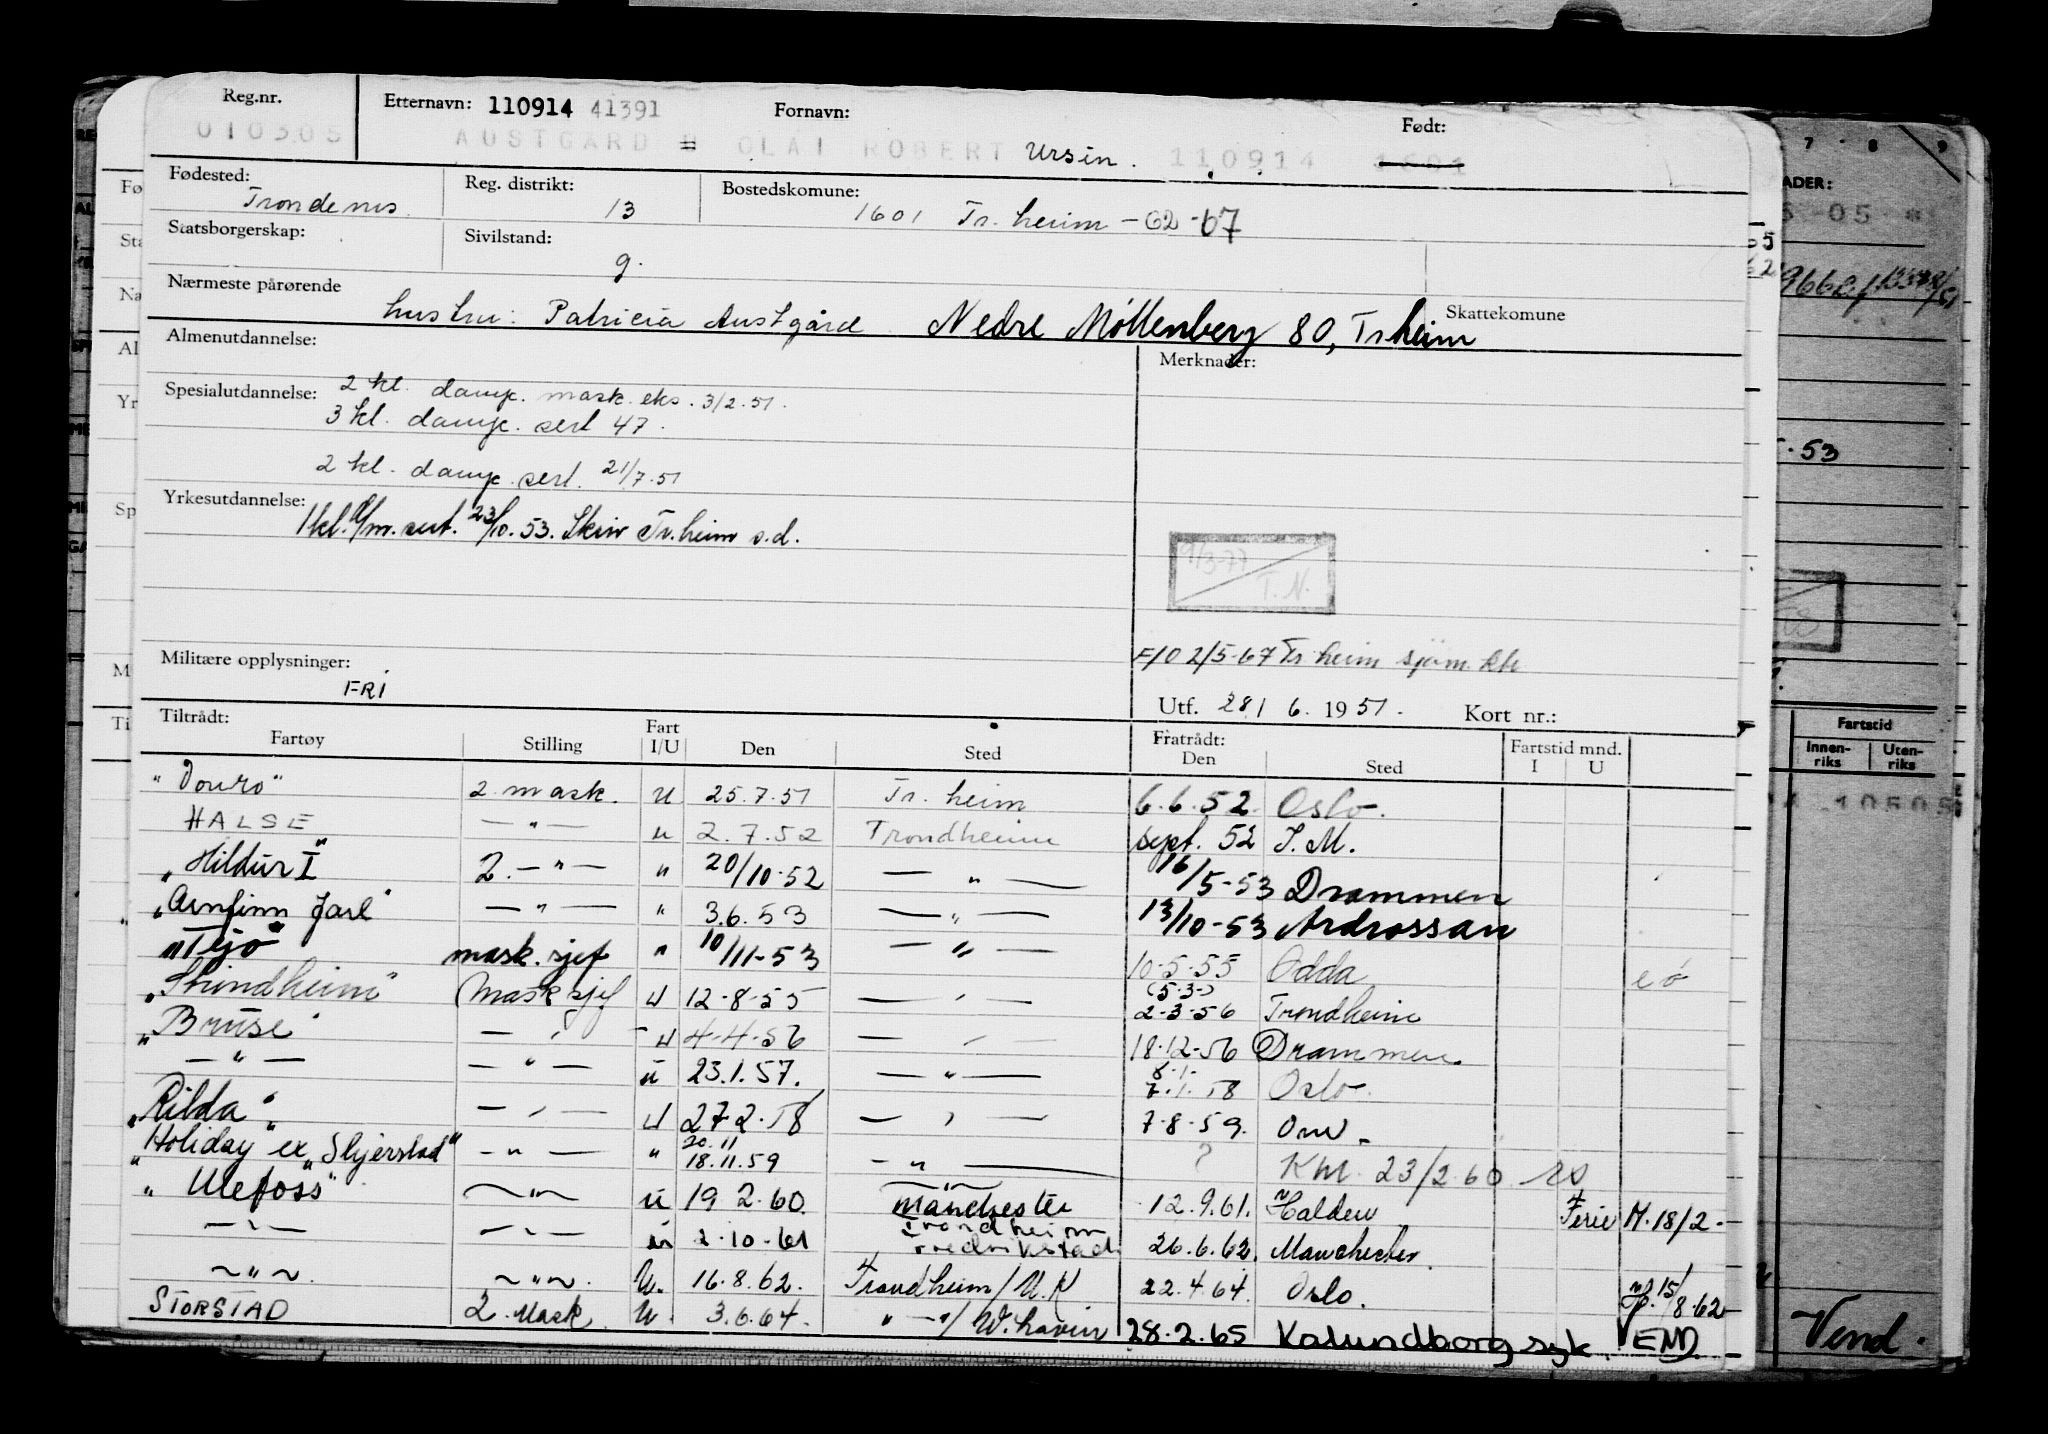 Reg.nr. Etternavn: 110914 41391 Fornavn: Født:
010305 AUSTGÅRD OLAI ROBERT Ursin. 110914 1601
Fødested: Trondenes Reg. distrikt: 13 Bostedskomune: 1601 Tr. heim - 62 - 67
Statsborgerskap: Sivilstand: g.
Nærmeste pårørende hustru: Patricia Austgård Nedre Möllenberg 80, Trheim Skattekomune
Almenutdannelse: Merknader:
Spesialutdannelse: 2 kl. damp. mask. eks. 3/2.51.
3 kl. damp. sert 47.
2 kl. damp. sert. 21/7.51
Yrkesutdannelse: 1 kl. d/m. sert. 23/10.53. Skriv Tr.heim s.d.
9/3-77 T.N.
F/O 2/5-67 Tr.heim sjøm. kh
Militære opplysninger: FRI
Utf. 28/ 6. 1951. Kort nr.:
Tiltrådt: Fart Fratrådt: Fartstid mnd.
Fartøy Stilling I/U Den Sted Den Sted I U
"Douro" 2. mask. U 25.7.51 Tr. heim 6.6.52 Oslo.
HALSE — " — u 2.7.52 Trondheim sept. 52 I.M.
"Hildur I" 2. — " — " 20/10-52 — " — 16/5-53 Drammen
"Arnfinn Jarl" — " — " 3.6.53 — " — 13/10-53 Ardrossan
"Tejo" mask. sjef " 10/11-53 — " — 10-5-55 Odda
"Strindheim" Mask sjef U 12-8-55 — " — (5-3-) 2-3-56 Trondheim
"Bruse" — " — U 4-4-56 — " — 18-12-56 Drammen.
— " — — " — u 23.1.57. — " — 8.1- 7.1.58 Oslo.
"Rilda" — " — U 27 2.58 — " — 7-8-59.
"Holiday" ex "Skjerstad" — " — " 20.11 18.11.59 — " — ? KM. 23/2.60
"Ulefoss" — " — u 19 2.60 Manchester 12.9.61. Halden Ferie M.18/2-
— " — — " — u 2-10-61 Trondheim Fredrikstad 26.6.62. Manchester.
— " — — " — U. 16.8.62. Trondheim/U.K 22.4.64. Oslo. 15/8-62
STORSTAD 2. Mask U. 3.6.64. " — "/ W.haven 28.2.65 Kalundborg syk. VEND
7 8 9
ADER:
-53
Fartstid
Innen-riks Uten-riks
10505
Vend.